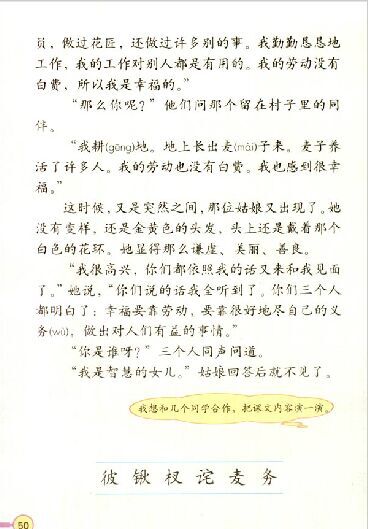 员，做过花匠，还做过许多别的事。我勤勤恳恳地
工作，我的工作对别人都是有用的。我的劳动没有
白费，所以我是幸福的。”
“那么你呢？”他们问那个留在村子里的同
伴。
“我耕(gēng)地。地上长出麦(mài)子来。麦子养
活了许多人。我的劳动也没有白费。我也感到很幸
福。”
这时候，又是突然之间，那位姑娘又出现了。她
没有变样，还是金黄色的头发，头上还是戴着那个
白色的花环。她显得那么谦虚、美丽、善良。
“我很高兴，你们都依照我的话又来和我见面
了。”她说，“你们说的话我全听到了。你们三个人
都明白了：幸福要靠劳动，要靠很好地尽自己的义
务(wù)，做出对人们有益的事情。”
“你是谁呀？”三个人同声问道。
“我是智慧的女儿。”姑娘回答后就不见了。
我想和几个同学合作，把课文内容演一演。
彼锹杈诧麦务
50